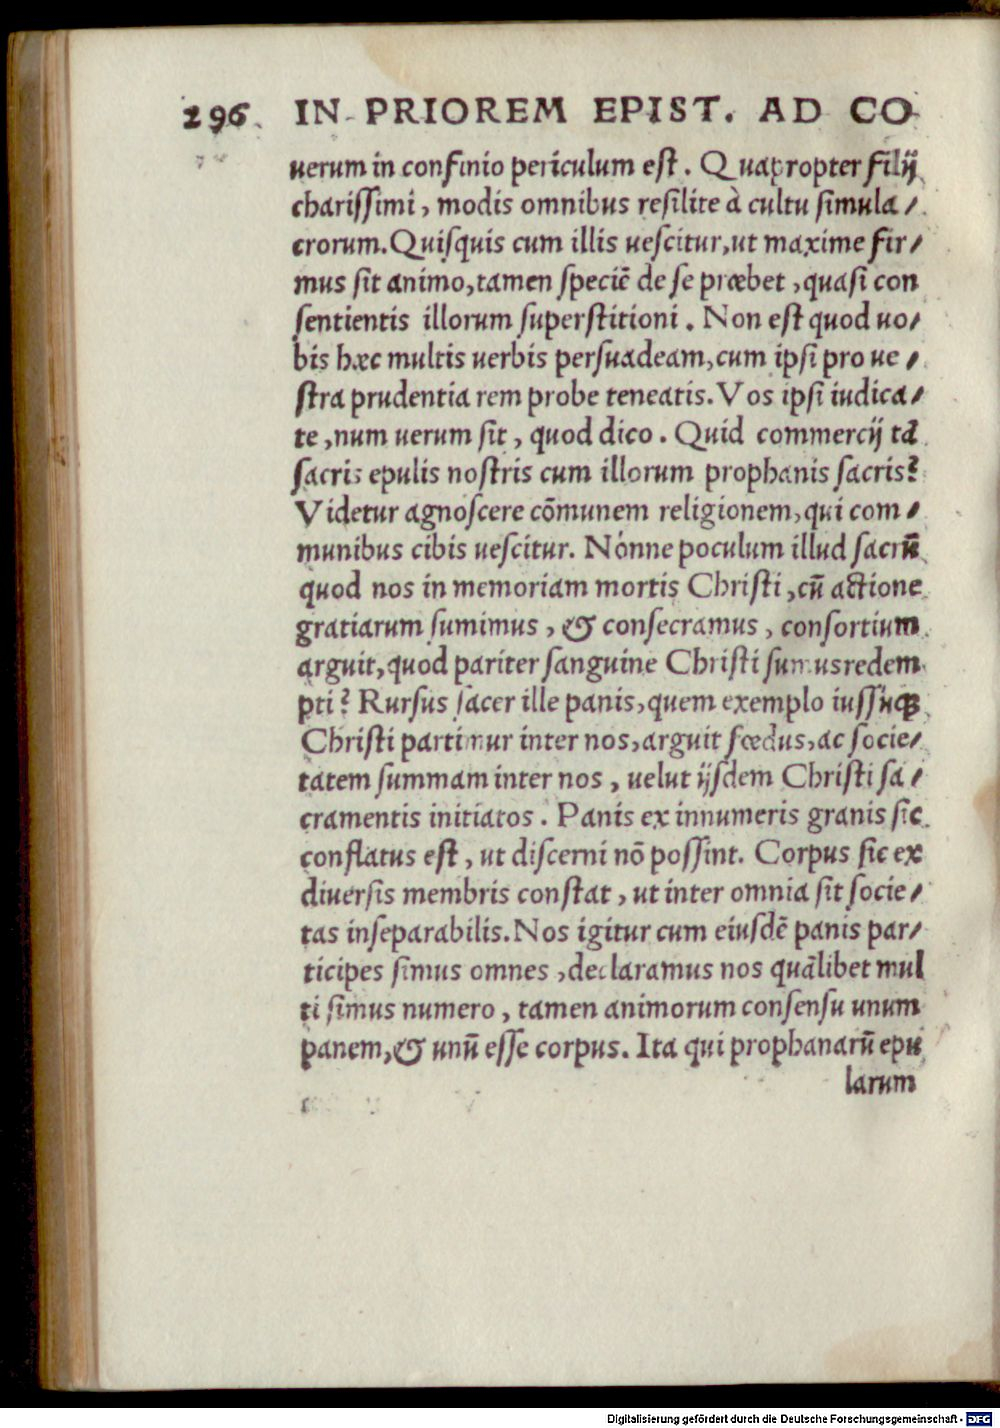 296 IN PRIOREM EPIST. AD CO
uerum in confinio periculum est. Quapropter filij
charissimi, modis omnibus resilite à cultu simula-
crorum. Quisquis cum illis uescitur, ut maxime fir-
mus sit animo, tamen speciẽ de se præbet, quasi con
sentientis illorum superstitioni. Non est quod uo-
bis hæc multis uerbis persuadeam, cum ipsi pro ue-
stra prudentia rem probe teneatis. Vos ipsi iudica-
te, num uerum sit, quod dico. Quid commercij tã
sacris epulis nostris cum illorum prophanis sacris?
Videtur agnoscere cõmunem religionem, qui com-
munibus cibis uescitur. Nonne poculum illud sacrũ
quod nos in memoriam mortis Christi, cũ actione
gratiarum sumimus, & consecramus, consortium
arguit, quod pariter sanguine Christi sumus redem
pti? Rursus sacer ille panis, quem exemplo iussuq́;
Christi partimur inter nos, arguit fœdus, ac socie-
tatem summam inter nos, uelut ijsdem Christi sa-
cramentis initiatos. Panis ex innumeris granis sic
conflatus est, ut discerni nõ possint. Corpus sic ex
diuersis membris constat, ut inter omnia sit socie-
tas inseparabilis. Nos igitur cum eiusdẽ panis par-
ticipes simus omnes, declaramus nos quãlibet mul
ti simus numero, tamen animorum consensu unum
panem, & unũ esse corpus. Ita qui prophanarũ epu
larum
Digitalisierung gefördert durch die Deutsche Forschungsgemeinschaft - DFG